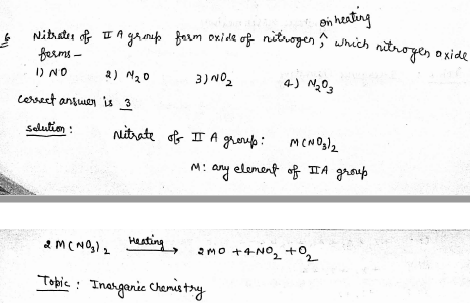 on heating
6 Nitrates of II A group form oxide of nitrogen ^, which nitrogen oxide
forms-
1) NO 2) N2O 3) NO2 4) N2O3
Correct answer is 3
Solution : Nitrate of II A group : M(NO3)2
M : any element of II A group
2 M(NO3)2 Heating → 2MO + 4NO2 + O2
Topic : Inorganic Chemistry